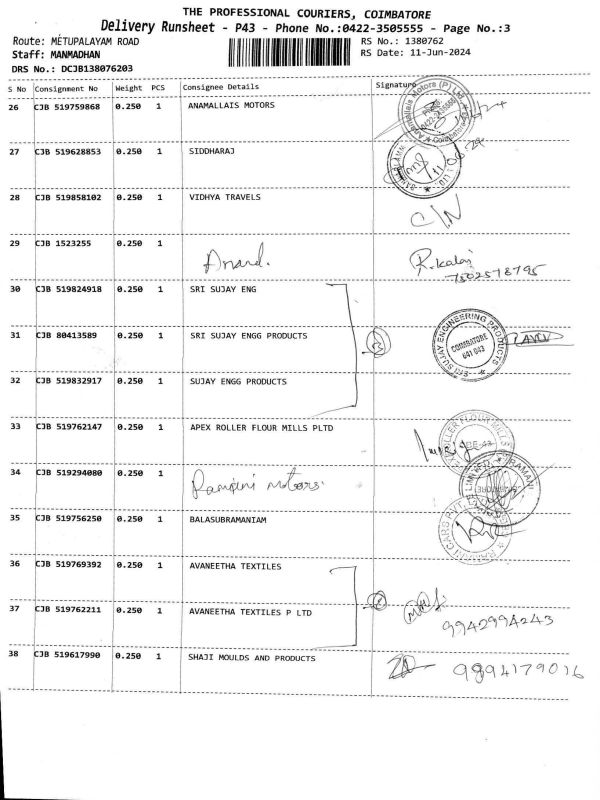 THE PROFESSIONAL COURIERS, COIMBATORE
Delivery Runsheet - P43 - Phone No.:0422-3505555 - Page No.:3
Route: METUPALAYAM ROAD RS No.: 1380762
Staff: MANMADHAN RS Date: 11-Jun-2024
DRS No.: DCJB138076203
S No Consignment No Weight PCS Consignee Details Signature
26 CJB 519759868 0.250 1 ANAMALLAIS MOTORS
27 CJB 519628853 0.250 1 SIDDHARAJ
28 CJB 519858102 0.250 1 VIDHYA TRAVELS C/N
29 CJB 1523255 0.250 1 Anand. R.kalai
7502578795
30 CJB 519824918 0.250 1 SRI SUJAY ENG
31 CJB 80413589 0.250 1 SRI SUJAY ENGG PRODUCTS SRI SUJAY ENGINEERING PRODUCTS COIMBATORE 641 043
32 CJB 519832917 0.250 1 SUJAY ENGG PRODUCTS
33 CJB 519762147 0.250 1 APEX ROLLER FLOUR MILLS PLTD ROLLER FLOUR MILLS
34 CJB 519294080 0.250 1 Motors.
35 CJB 519756250 0.250 1 BALASUBRAMANIAM
36 CJB 519769392 0.250 1 AVANEETHA TEXTILES
37 CJB 519762211 0.250 1 AVANEETHA TEXTILES P LTD 9942994243
38 CJB 519617990 0.250 1 SHAJI MOULDS AND PRODUCTS 9894179016